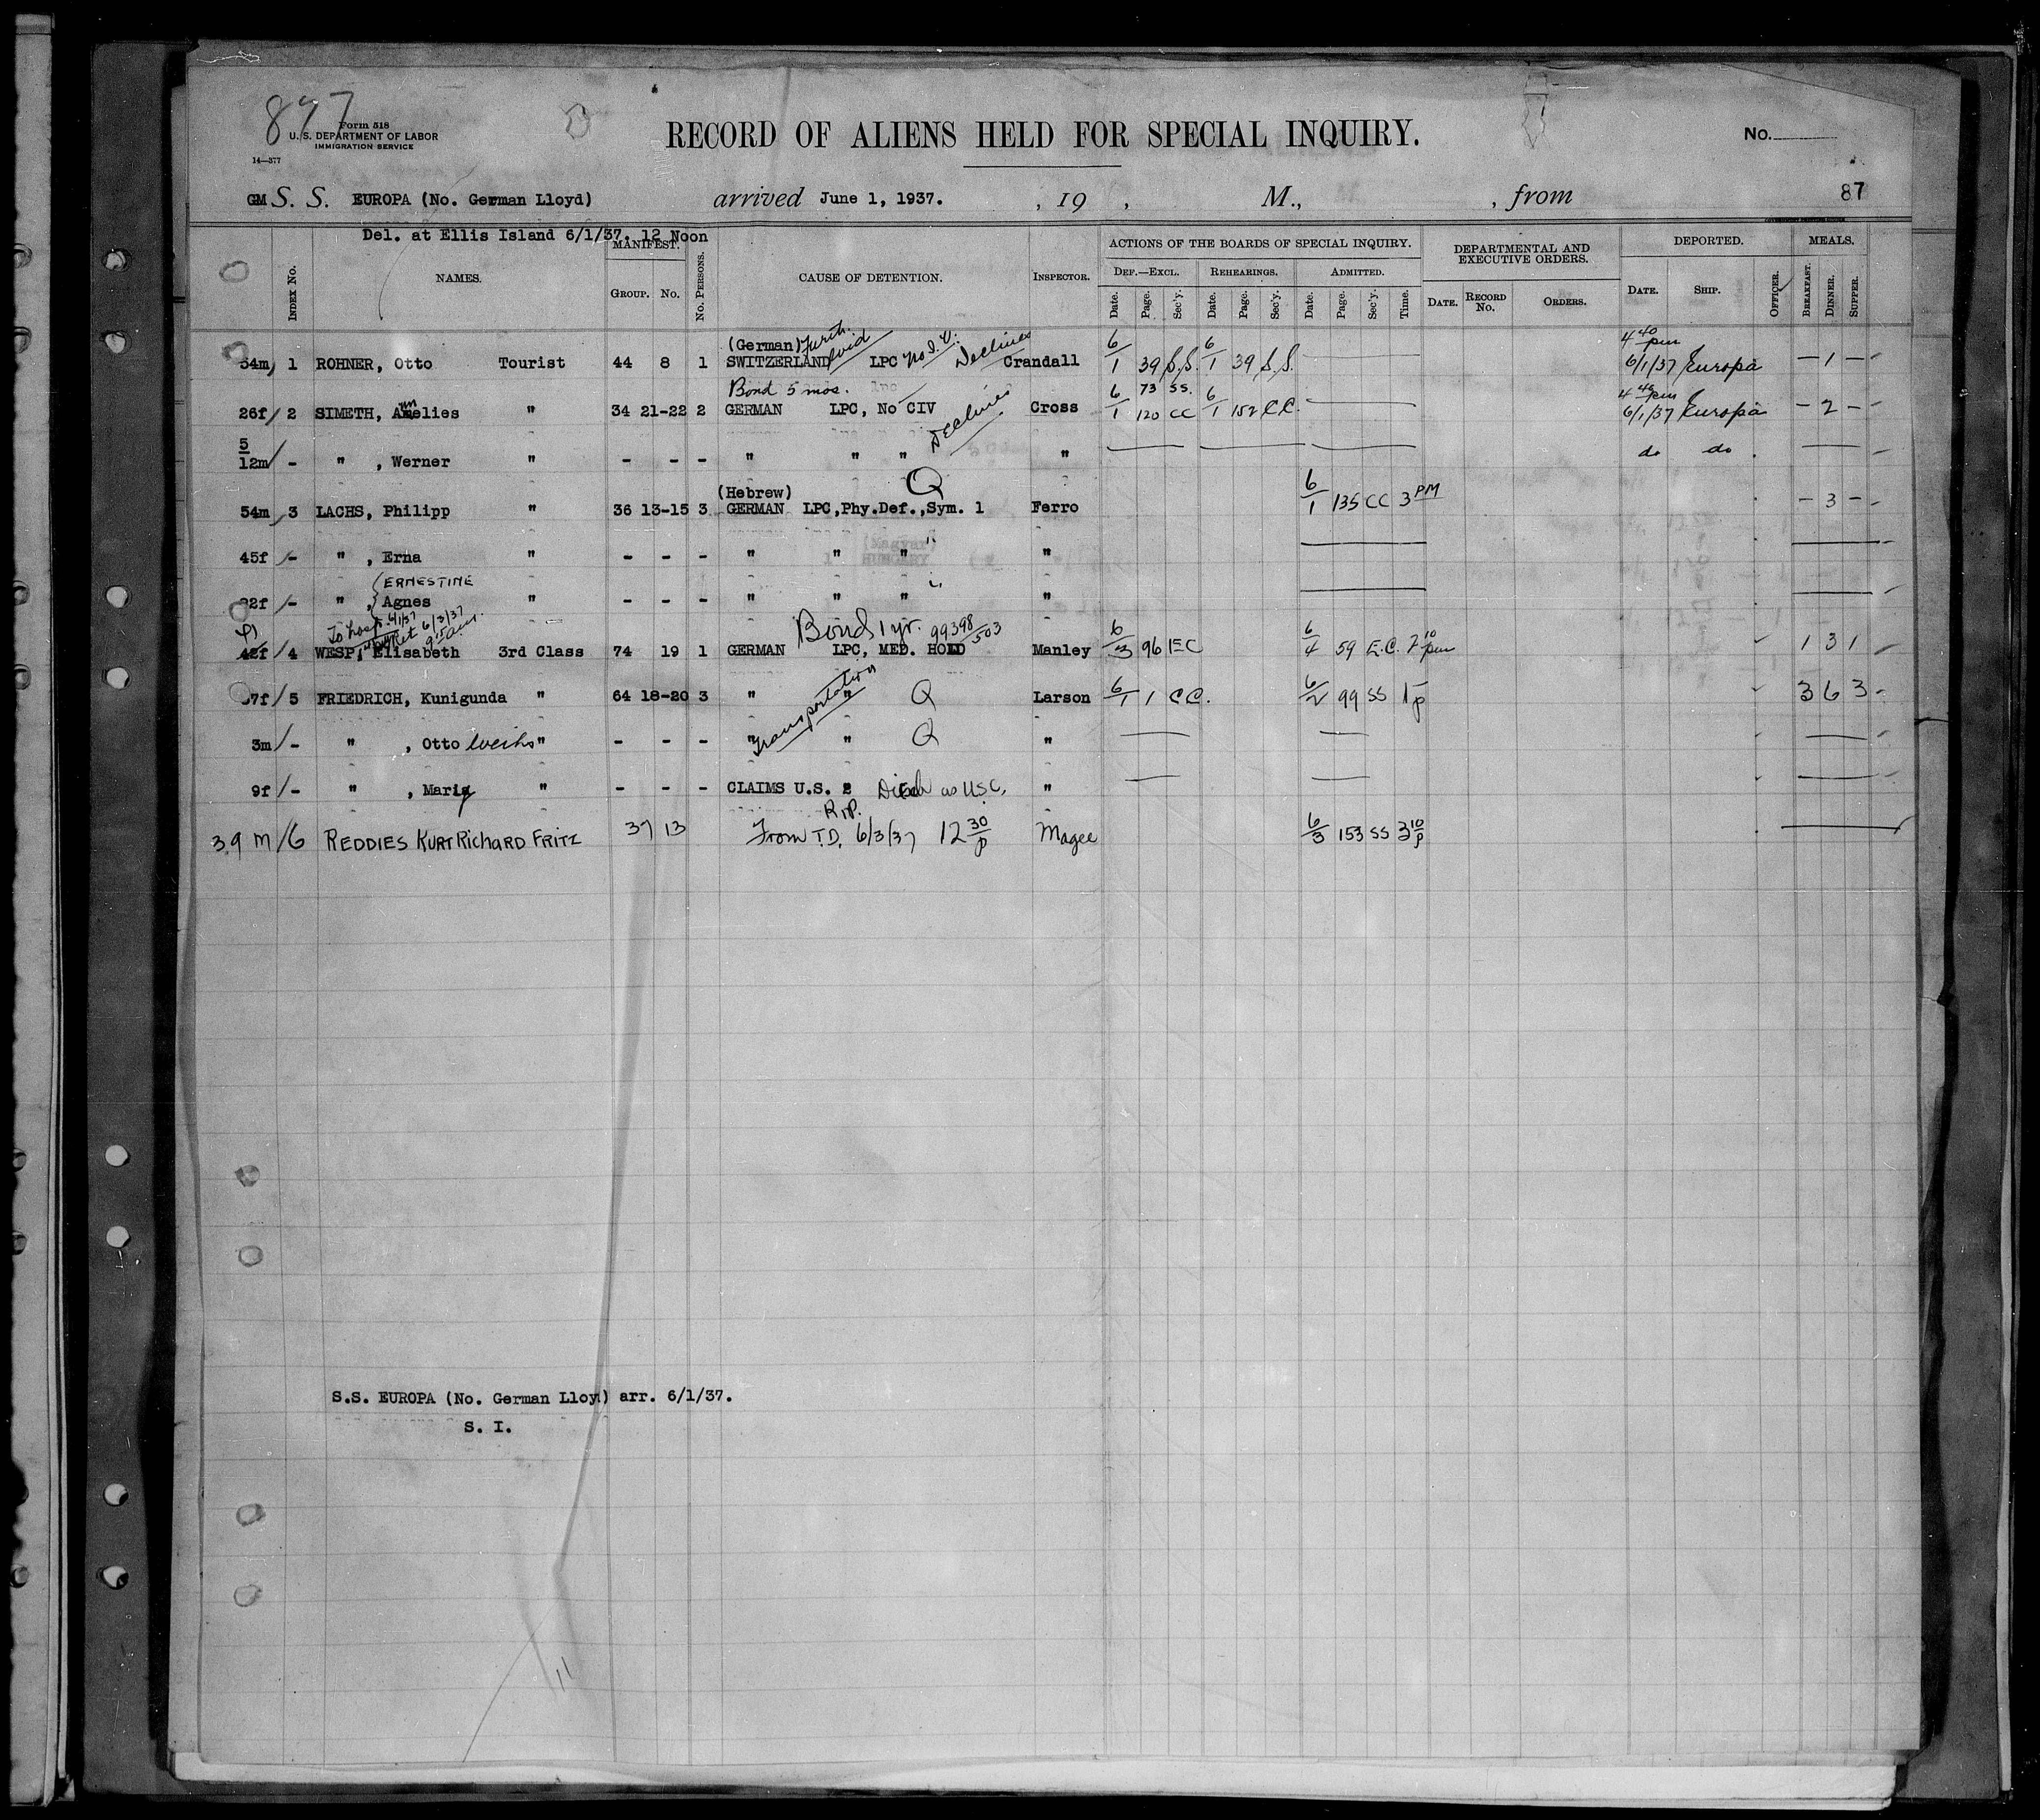 877
Form 518
U. S. DEPARTMENT OF LABOR
IMMIGRATION SERVICE
14—577
RECORD OF ALIENS HELD FOR SPECIAL INQUIRY.
No.
GM S. S. EUROPA (No. German Lloyd) arrived June 1, 1937. , 19 , M., , from 87
Del. at Ellis Island 6/1/37. 12 Noon
INDEX No. NAMES. MANIFEST. GROUP. No. No. PERSONS. CAUSE OF DETENTION. INSPECTOR. ACTIONS OF THE BOARDS OF SPECIAL INQUIRY. DEF.—EXCL. Date. Page. Sec'y. REHEARINGS. Date. Page. Sec'y. ADMITTED. Date. Page. Sec'y. Time. DEPARTMENTAL AND EXECUTIVE ORDERS. DATE. RECORD No. ORDERS. DEPORTED. DATE. SHIP. OFFICER. MEALS. BREAKFAST. DINNER. SUPPER.
(German) Furth. evid 4 40 pm
54m 1 ROHNER, Otto Tourist 44 8 1 SWITZERLAND LPC No I.V. Declines Crandall 6/1 39 S.S. 6/1 39 S.S. — 6/1/37 Europa — 1 —
Bond 5 mos. 73 SS. 4 45 pm
26f/ 2 SIMETH, Annelies " 34 21-22 2 GERMAN LPC, No CIV Declines Cross 6/1 120 CC 6/1 152 C.C. — 6/1/37 Europa — 2 —
5/12m/ - " , Werner " - - - " " " " — — — do do —
(Hebrew) Q
54m 3 LACHS, Philipp " 36 13-15 3 GERMAN LPC,Phy.Def.,Sym. 1 Ferro 6/1 135 CC 3 PM — 3 —
45f /- " , Erna " - - - " " " " — —
ERNESTINE
22f /- " , Agnes " - - - " " " " — —
To hosp. 6/1/37 Ret 6/3/37 9 15 am Bond 1 yr. 99398/503
42f/ 4 WESP, Elisabeth 3rd Class 74 19 1 GERMAN LPC, MED. HOLD Manley 6/3 96 EC 6/4 59 E.C. 2 10 pm 1 3 1
37f/ 5 FRIEDRICH, Kunigunda " 64 18-20 3 " " Transportation Q Larson 6/1 1 CC. 6/2 99 SS 1 p 3 6 3
3m/- " , Otto Weihs " - - - " " Q " — — —
9f /- " , Maria " - - - CLAIMS U.S. as USC. " — — —
39 m/6 REDDIES KURT RichARD FRITZ 37 13 From T.D. 6/3/37 12 30 p Magee 6/3 153 SS 3 10 p —
S.S. EUROPA (No. German Lloyd) arr. 6/1/37.
S. I.